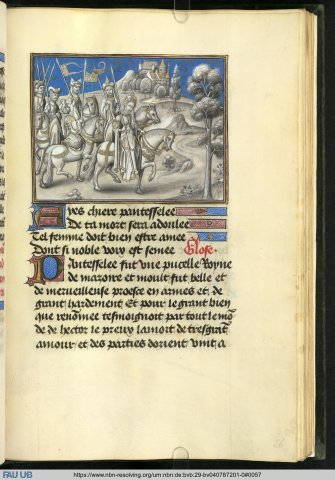 Ayes chiere pantesselee
De ta mort sera adoulee
Tel femme doit bien estre amee
Dont si noble voix est semee Glose
Pantesselee fut vne pucelle Royne
de mazonie et moult fut belle et
de merueilleuse proesce en armes et de
grant hardement Et pour le grant bien
que renommee tesmoignoit par tout le mõ
de de hector le preux lamoit de tresgrãt
amour et des parties dorient vint a
FAU UB
https://www.nbn-resolving.org/urn:nbn:de:bvb:29-bv040787201-0#0057